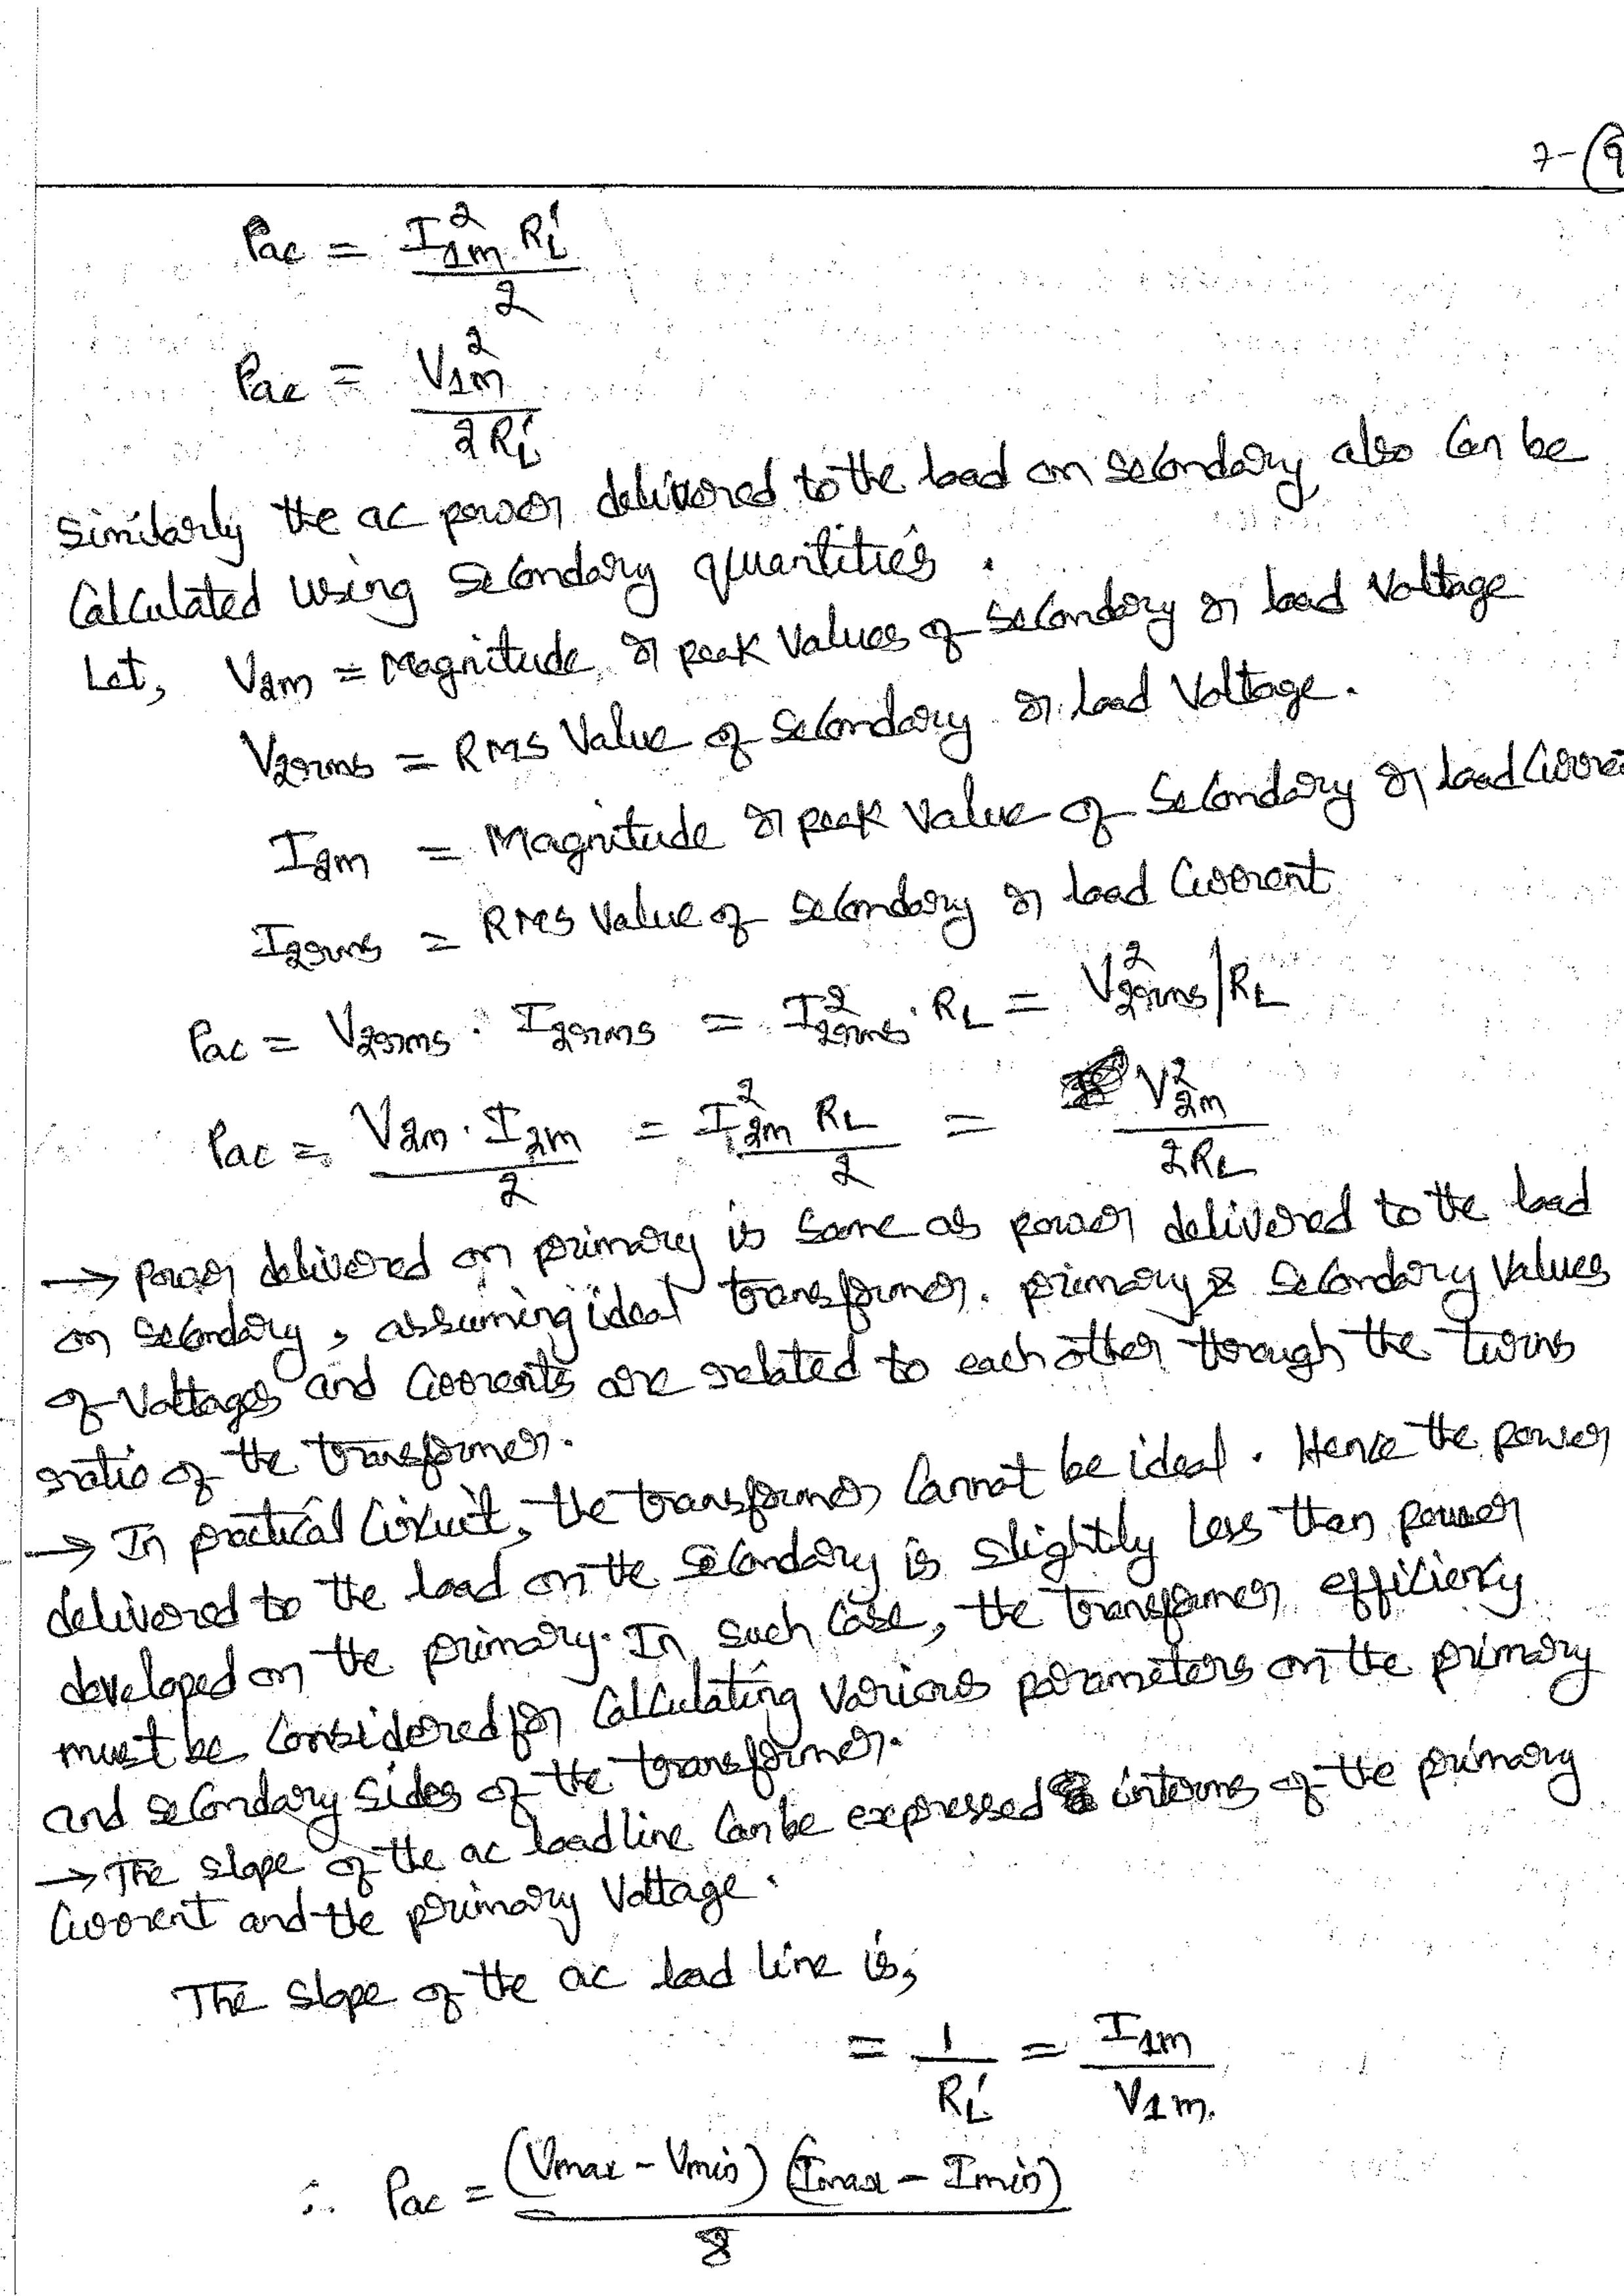 7-(9
Pac = I1m² RL' / 2
Pac = V1m² / 2RL'
Similarly the ac power delivered to the load on secondary, also can be
calculated using secondary quantities.
Let, V2m = Magnitude or peak values of secondary or load voltage
V2rms = RMS value of secondary or load voltage.
I2m = Magnitude or peak value of secondary or load curre
I2rms = RMS value of secondary or load current
Pac = V2rms · I2rms = I2rms² · RL = V2rms² / RL
Pac = V2m · I2m / 2 = I2m² RL / 2 = V2m² / 2RL
→ power delivered on primary is same as power delivered to the load
on secondary, assuming ideal transformer. primary & secondary values
of voltages and currents are related to each other through the turns
ratio of the transformer.
→ In practical circuit, the transformer cannot be ideal. Hence the power
delivered to the load on the secondary is slightly less than power
developed on the primary. In such case, the transformer efficiency
must be considered for calculating various parameters on the primary
and secondary sides of the transformer.
→ The slope of the ac loadline can be expressed interms of the primary
current and the primary voltage.
The slope of the ac load line is,
= 1 / RL' = I1m / V1m.
∴ Pac = (Vmax - Vmin) (Imax - Imin) / 8